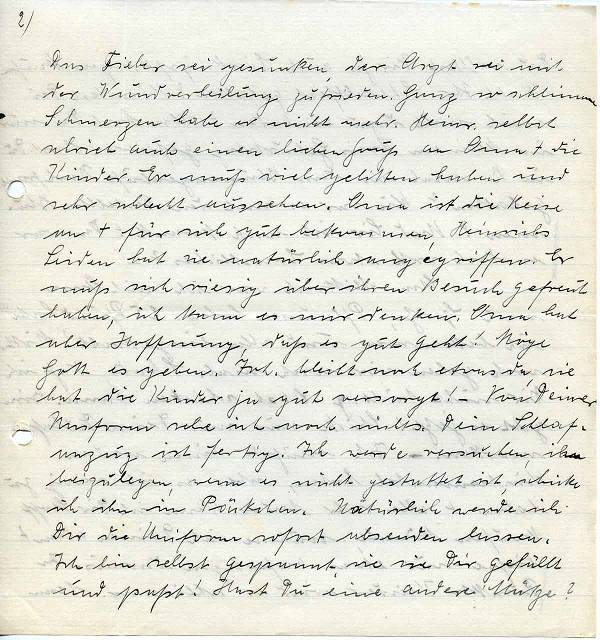 2/
Das Fieber sei gesunken, der Arzt sei mit
der Wundverheilung zufrieden. Ganz so schlimme
Schmerzen habe er nicht mehr. Heinr. selbst
schrieb auch einen lieben Gruß an Oma + die
Kinder. Er muß viel gelitten haben und
sehr schlecht aussehen. Oma ist die Reise
an + für sich gut bekommen, Heinrichs
Leiden hat sie natürlich angegriffen. Er
muß sich riesig über ihren Besuch gefreut
haben, ich kann es mir denken. Oma hat
aber Hoffnung, daß es gut geht! Möge
Gott es geben. Joh. bleibt noch etwas da, sie
hat die Kinder ja gut versorgt! – Von Deiner
Uniform sehe ich noch nichts. Dein Schlaf-
anzug ist fertig. Ich werde versuchen, ihn
beizulegen, wenn es nicht gestattet ist, schicke
ich ihn in Päckchen. Natürlich werde ich
Dir die Uniform sofort absenden lassen.
Ich bin selbst gespannt, wie sie Dir gefällt
und paßt! Hast Du eine andere Mütze?